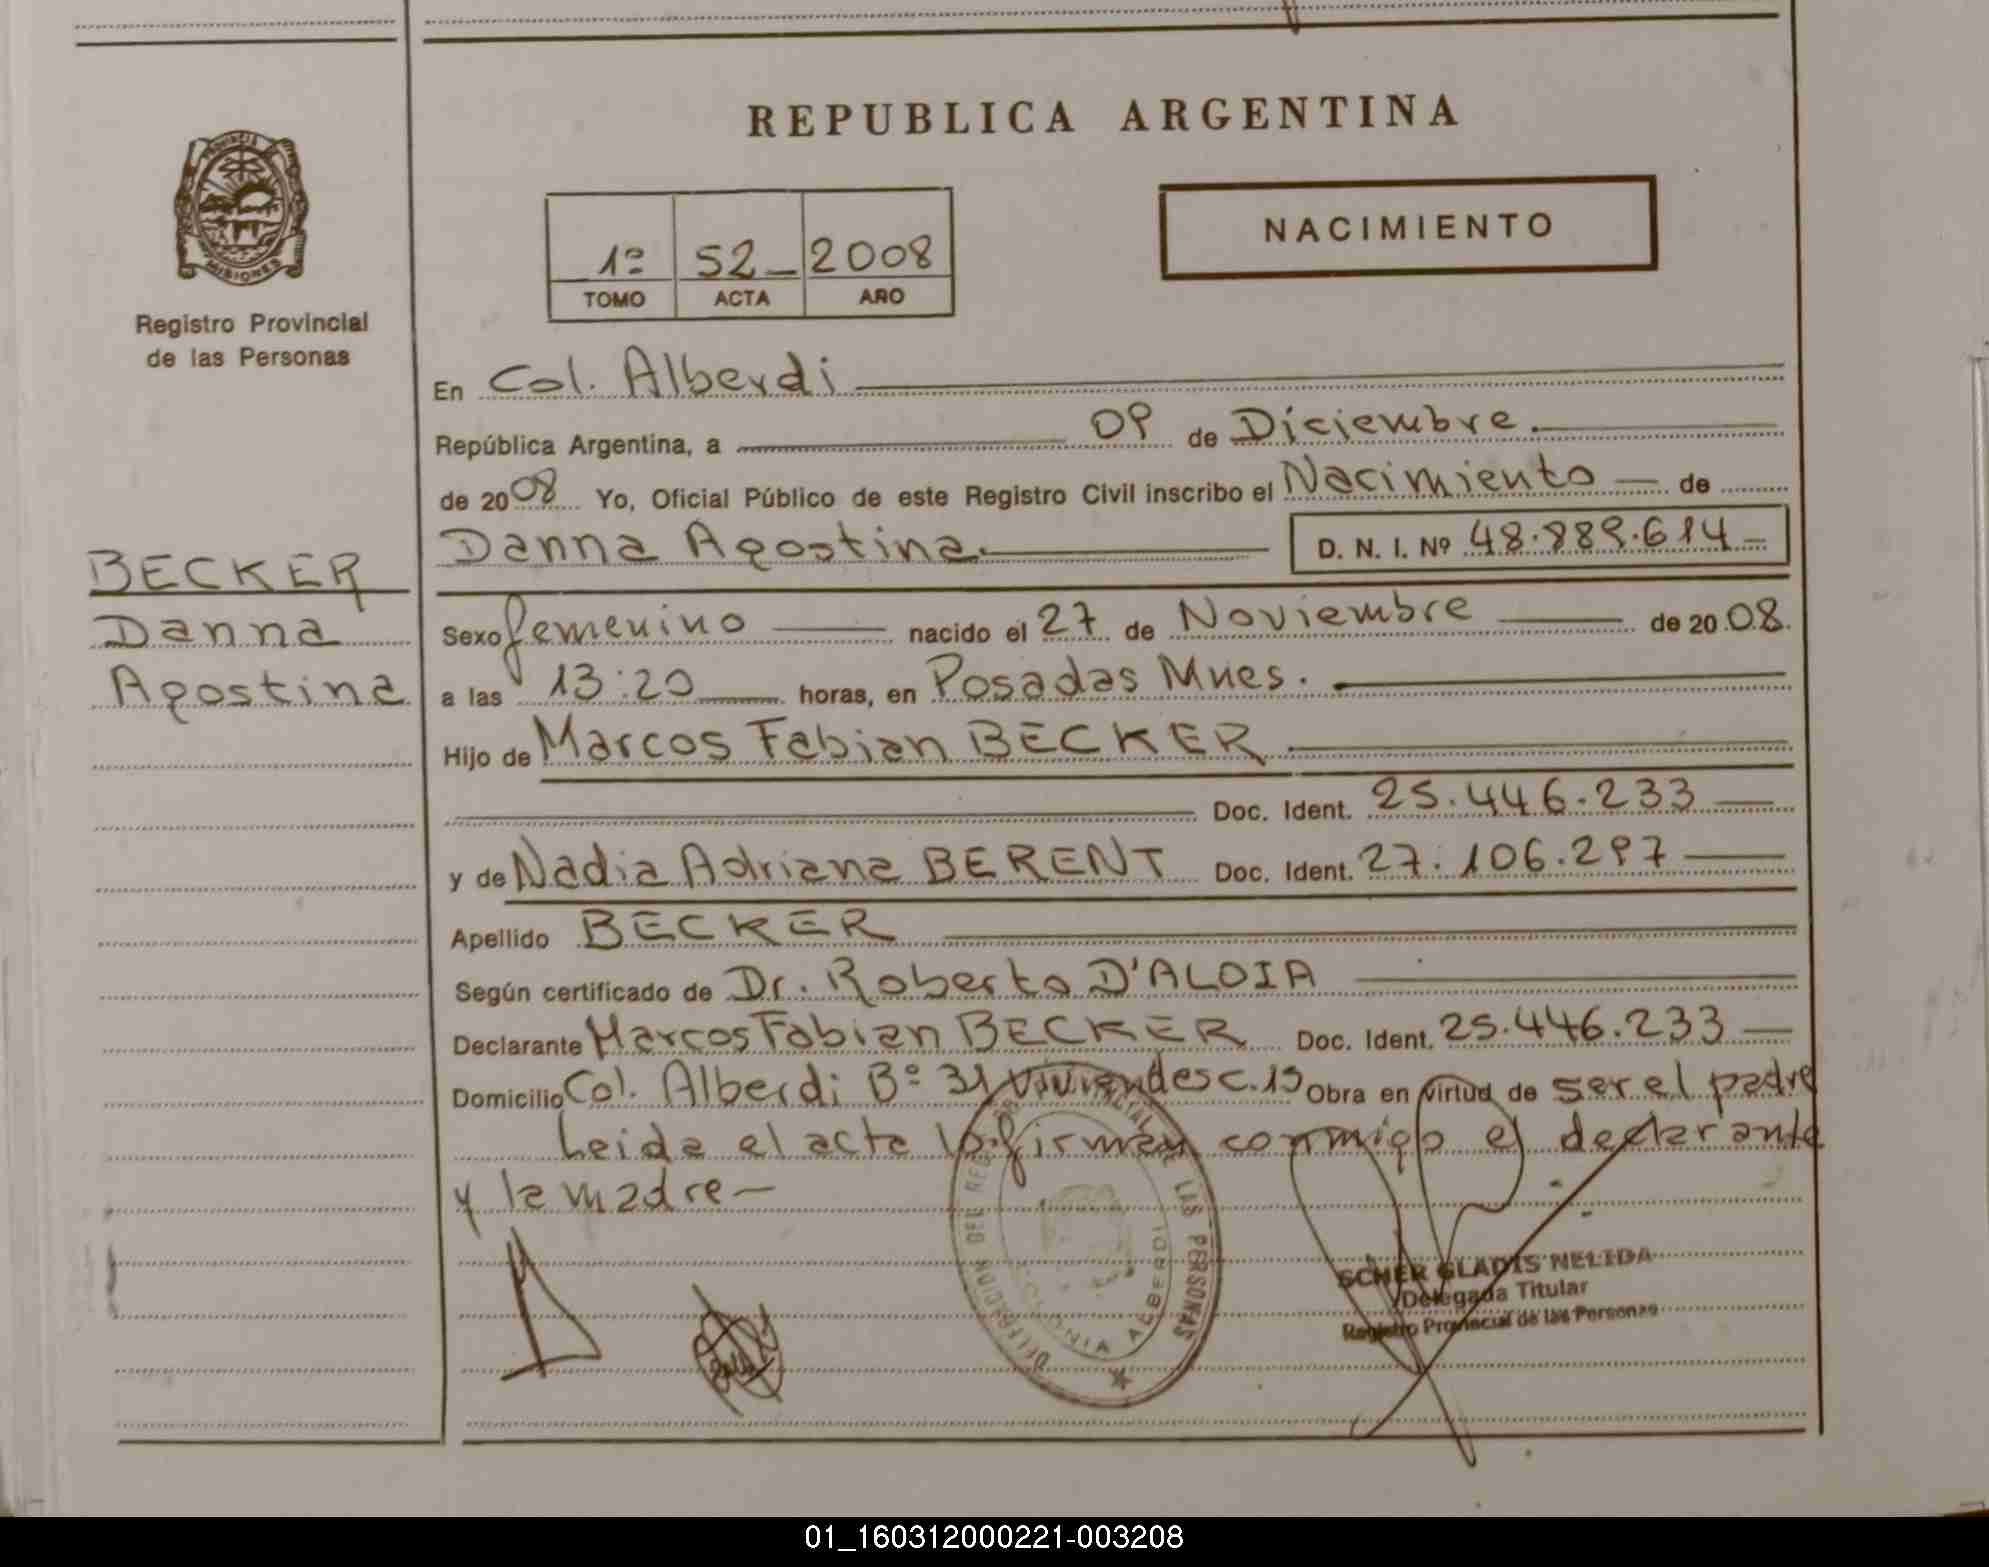 REPUBLICA ARGENTINA
PROVINCIA DE
MISIONES
Registro Provincial
de las Personas
NACIMIENTO
1º 52 2008
TOMO ACTA AÑO
En Col. Alberdi
República Argentina, a 09 de Diciembre.
de 2008 Yo, Oficial Público de este Registro Civil inscribo el Nacimiento de
Danna Agostina D. N. I. Nº 48.889.614
BECKER
Danna
Agostina
Sexo femenino nacido el 27 de Noviembre de 2008.
a las 13:20 horas, en Posadas Mnes.
Hijo de Marcos Fabian BECKER
Doc. Ident. 25.446.233
y de Nadia Adriana BERENT Doc. Ident. 27.106.297
Apellido BECKER
Según certificado de Dr. Roberto D'ALOIA
Declarante Marcos Fabian BECKER Doc. Ident. 25.446.233
Domicilio Col. Alberdi Bº 31 Viviendas c.15 Obra en virtud de ser el padre
Leida el acta la firman conmigo el declarante
y la madre
DELEGACION DEL REGISTRO PROVINCIAL DE LAS PERSONAS
COLONIA ALBERDI
SCHER GLADIS NELIDA
Delegada Titular
Registro Provincial de las Personas
01_160312000221-003208